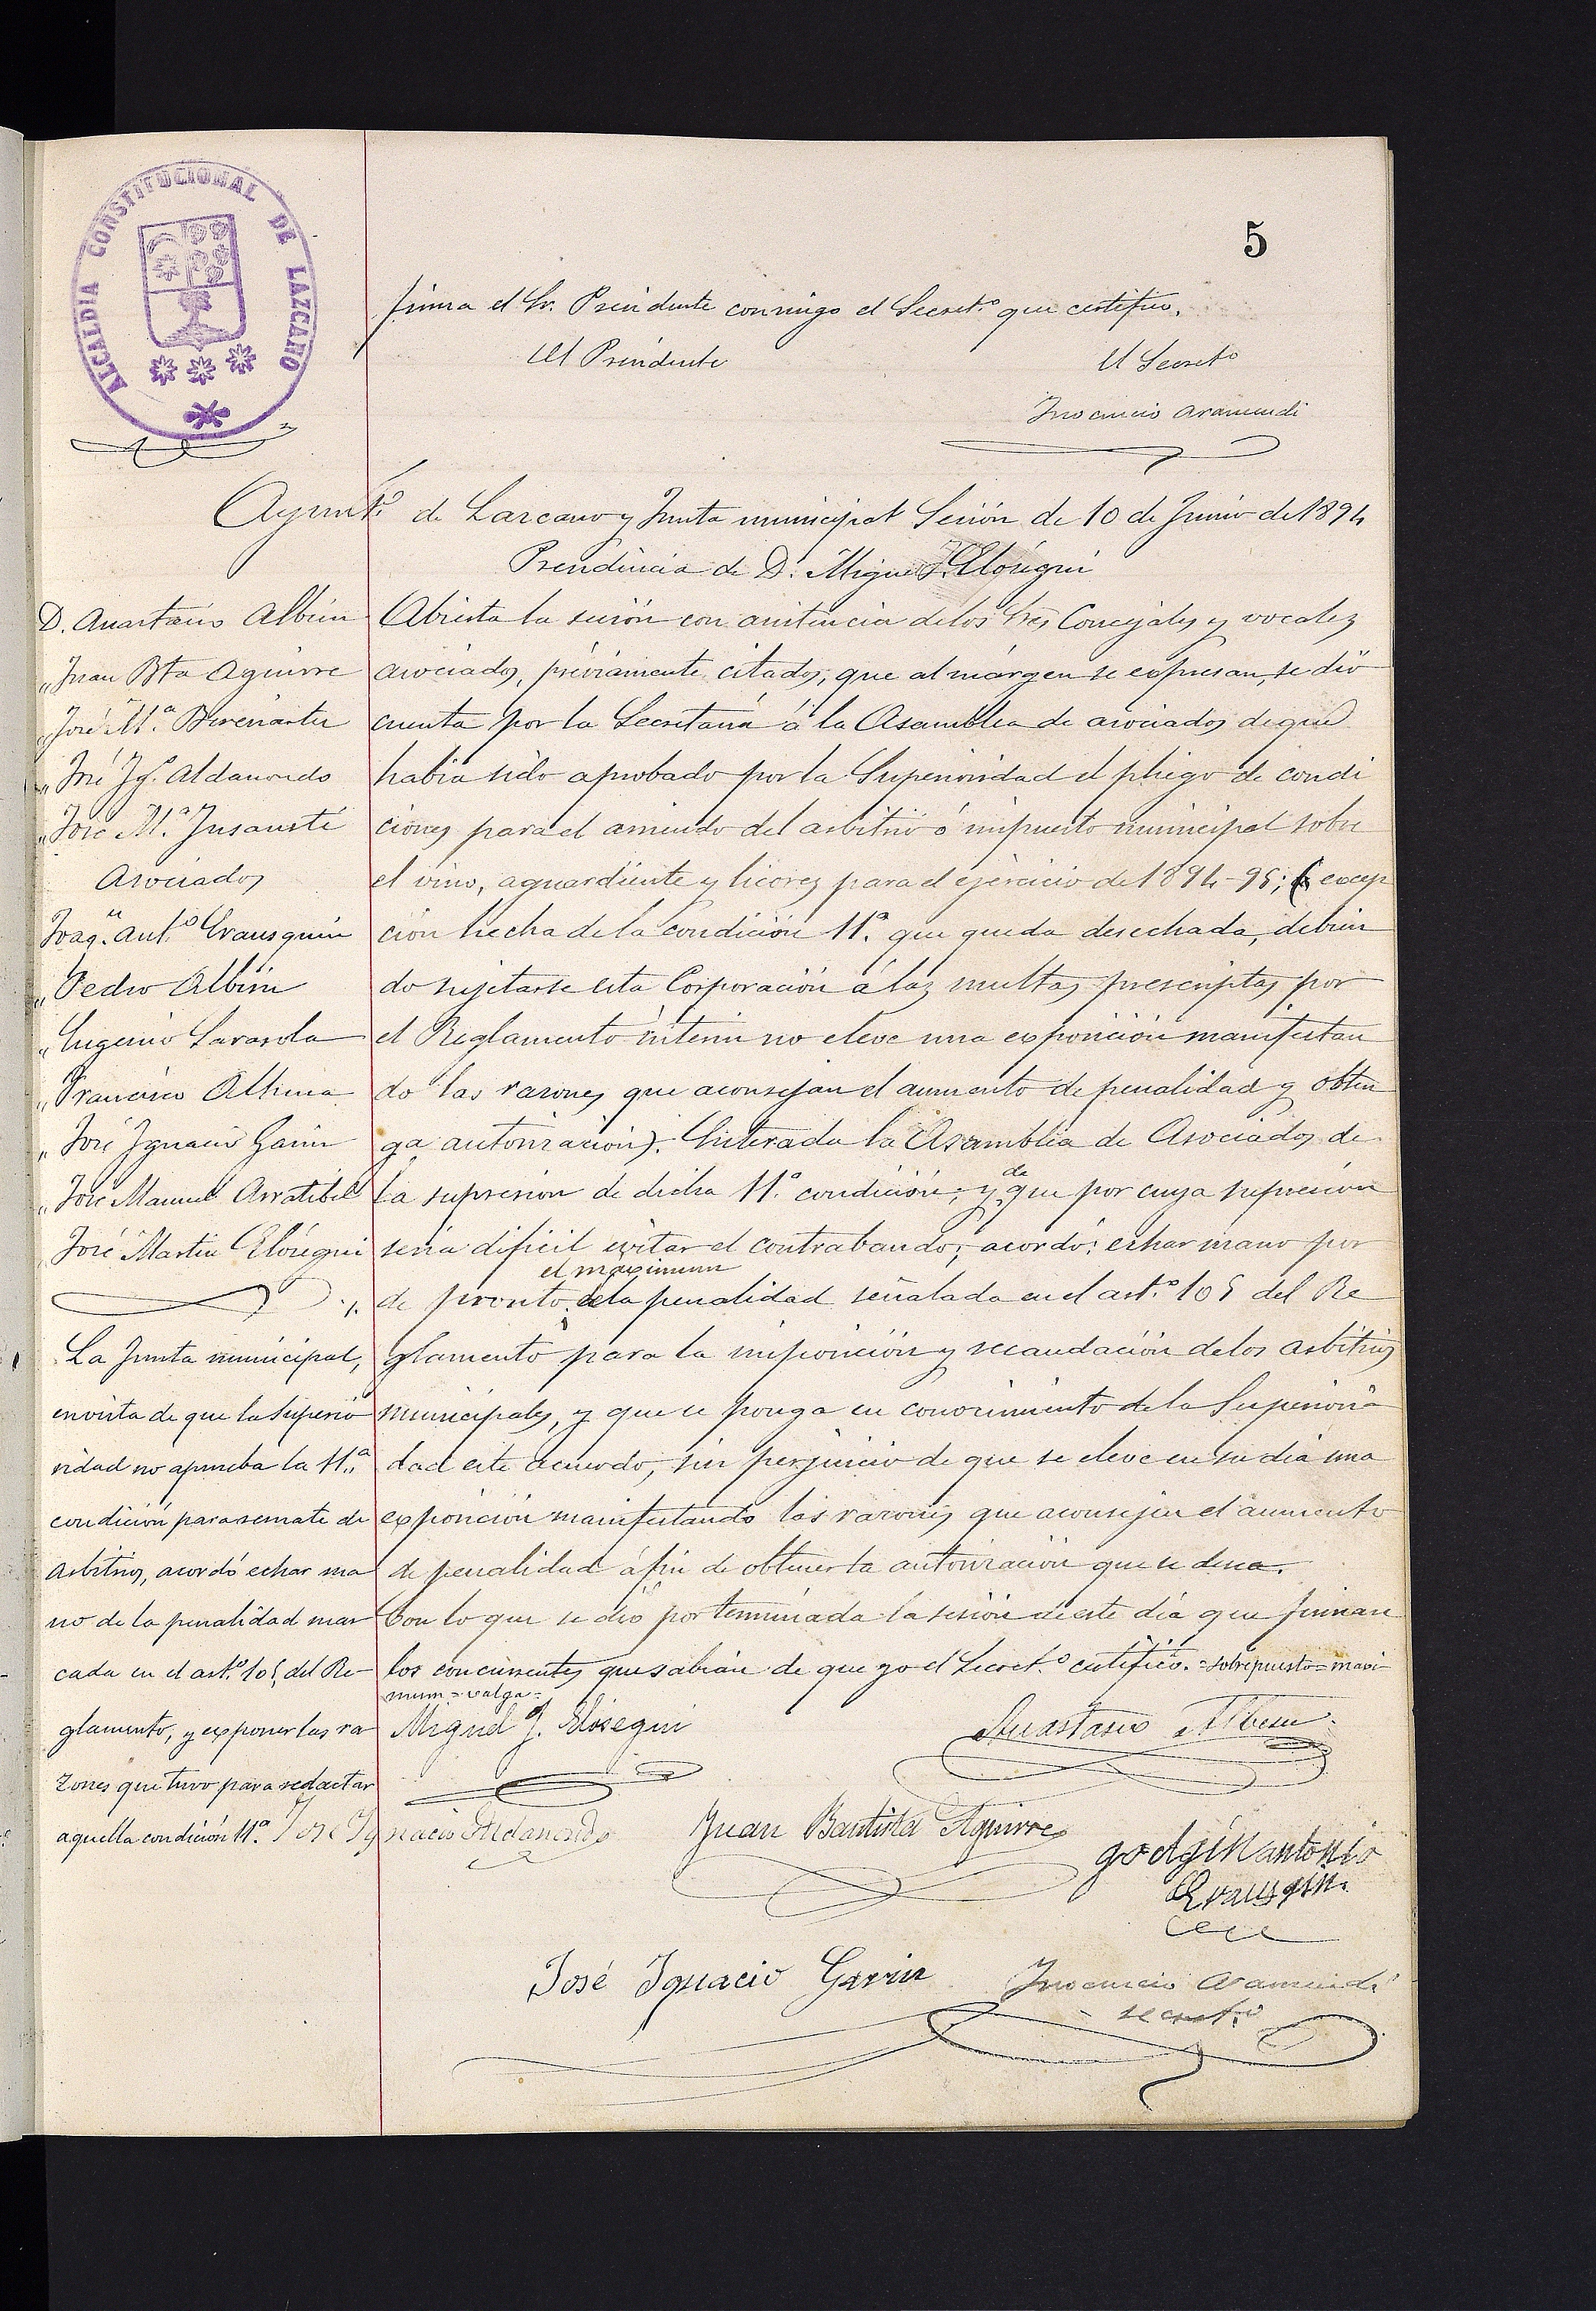 5
ALCALDIA CONSTITUCIONAL DE LAZCANO
firma el Sr. Presidente conmigo el Secret.º que certifico.
El Presidente
El Secret.º
Inocencio Aramendi
Ayunt.º de Lazcano y Junta municipal Sesión de 10 de Junio de 1894
Presidencia de D. Miguel J. Elósegui
D. Anastasio Albisu
" Juan Bta Aguirre
" José M.ª Berenarte
" José Ig.º Aldanondo
" José M.ª Insausti
Asociados
Joaq.n Ant.º Erausquin
" Pedro Albisu
" Eugenio Sarasola
" Francisco Altuna
" José Ignacio Garin
" José Manuel Arratibel
José Martin Elósegui
La Junta municipal,
en vista de que la Superio
ridad no aprueba la 11.ª
condición para remate de
arbitrios, acordó echar ma
no de la penalidad mar
cada en el art.º 105 del Re-
glamento, y exponer las ra
zones que tuvo para redactar
aquella condición 11.ª
Abierta la sesión con asistencia de los Sres Concejales y vocales
asociados, préviamente citados, que al márgen se expresan, se dió
cuenta por la Secretaría á la Asamblea de asociados de que
habia sido aprobado por la Superioridad el pliego de condi
ciones para el arriendo del arbitrio ó impuesto municipal sobre
el vino, aguardiente y licores para el ejercicio de 1894-95; (excep
ción hecha de la condición 11.ª que queda desechada, debien
do sujetarse esta Corporación á las multas prescriptas por
el Reglamento interin no eleve una exposición manifestan
do las razones que aconsejan el aumento de penalidad y obten
ga autorización). Enterada la Asamblea de Asociados de
la supresion de dicha 11.ª condición; y de que por cuya supresión
seria dificil evitar el contrabando; acordó: echar mano por
de pronto el maximum de la penalidad señalada en el art.º 105 del Re
glamento para la imposición y recaudación de los arbitrios
municipales, y que se ponga en conocimiento de la Superiori
dad este acuerdo, sin perjuicio de que se eleve en su dia una
exposición manifestando las razones que aconsejen el aumento
de penalidad á fin de obtener la autorización que se desea.
Con lo que se dió por terminada la sesión de este día que firman
los concurrentes que sabian de que yo el Secret.º certifico. = sobrepuesto = maxi-
mum = valga =
Miguel J. Elósegui
Anastasio Albisu
José Ignacio Aldanondo
Juan Bautista Aguirre
godgin antonio
Erausqin
José Ignacio Garin
Inocencio Aramendi
secret.º